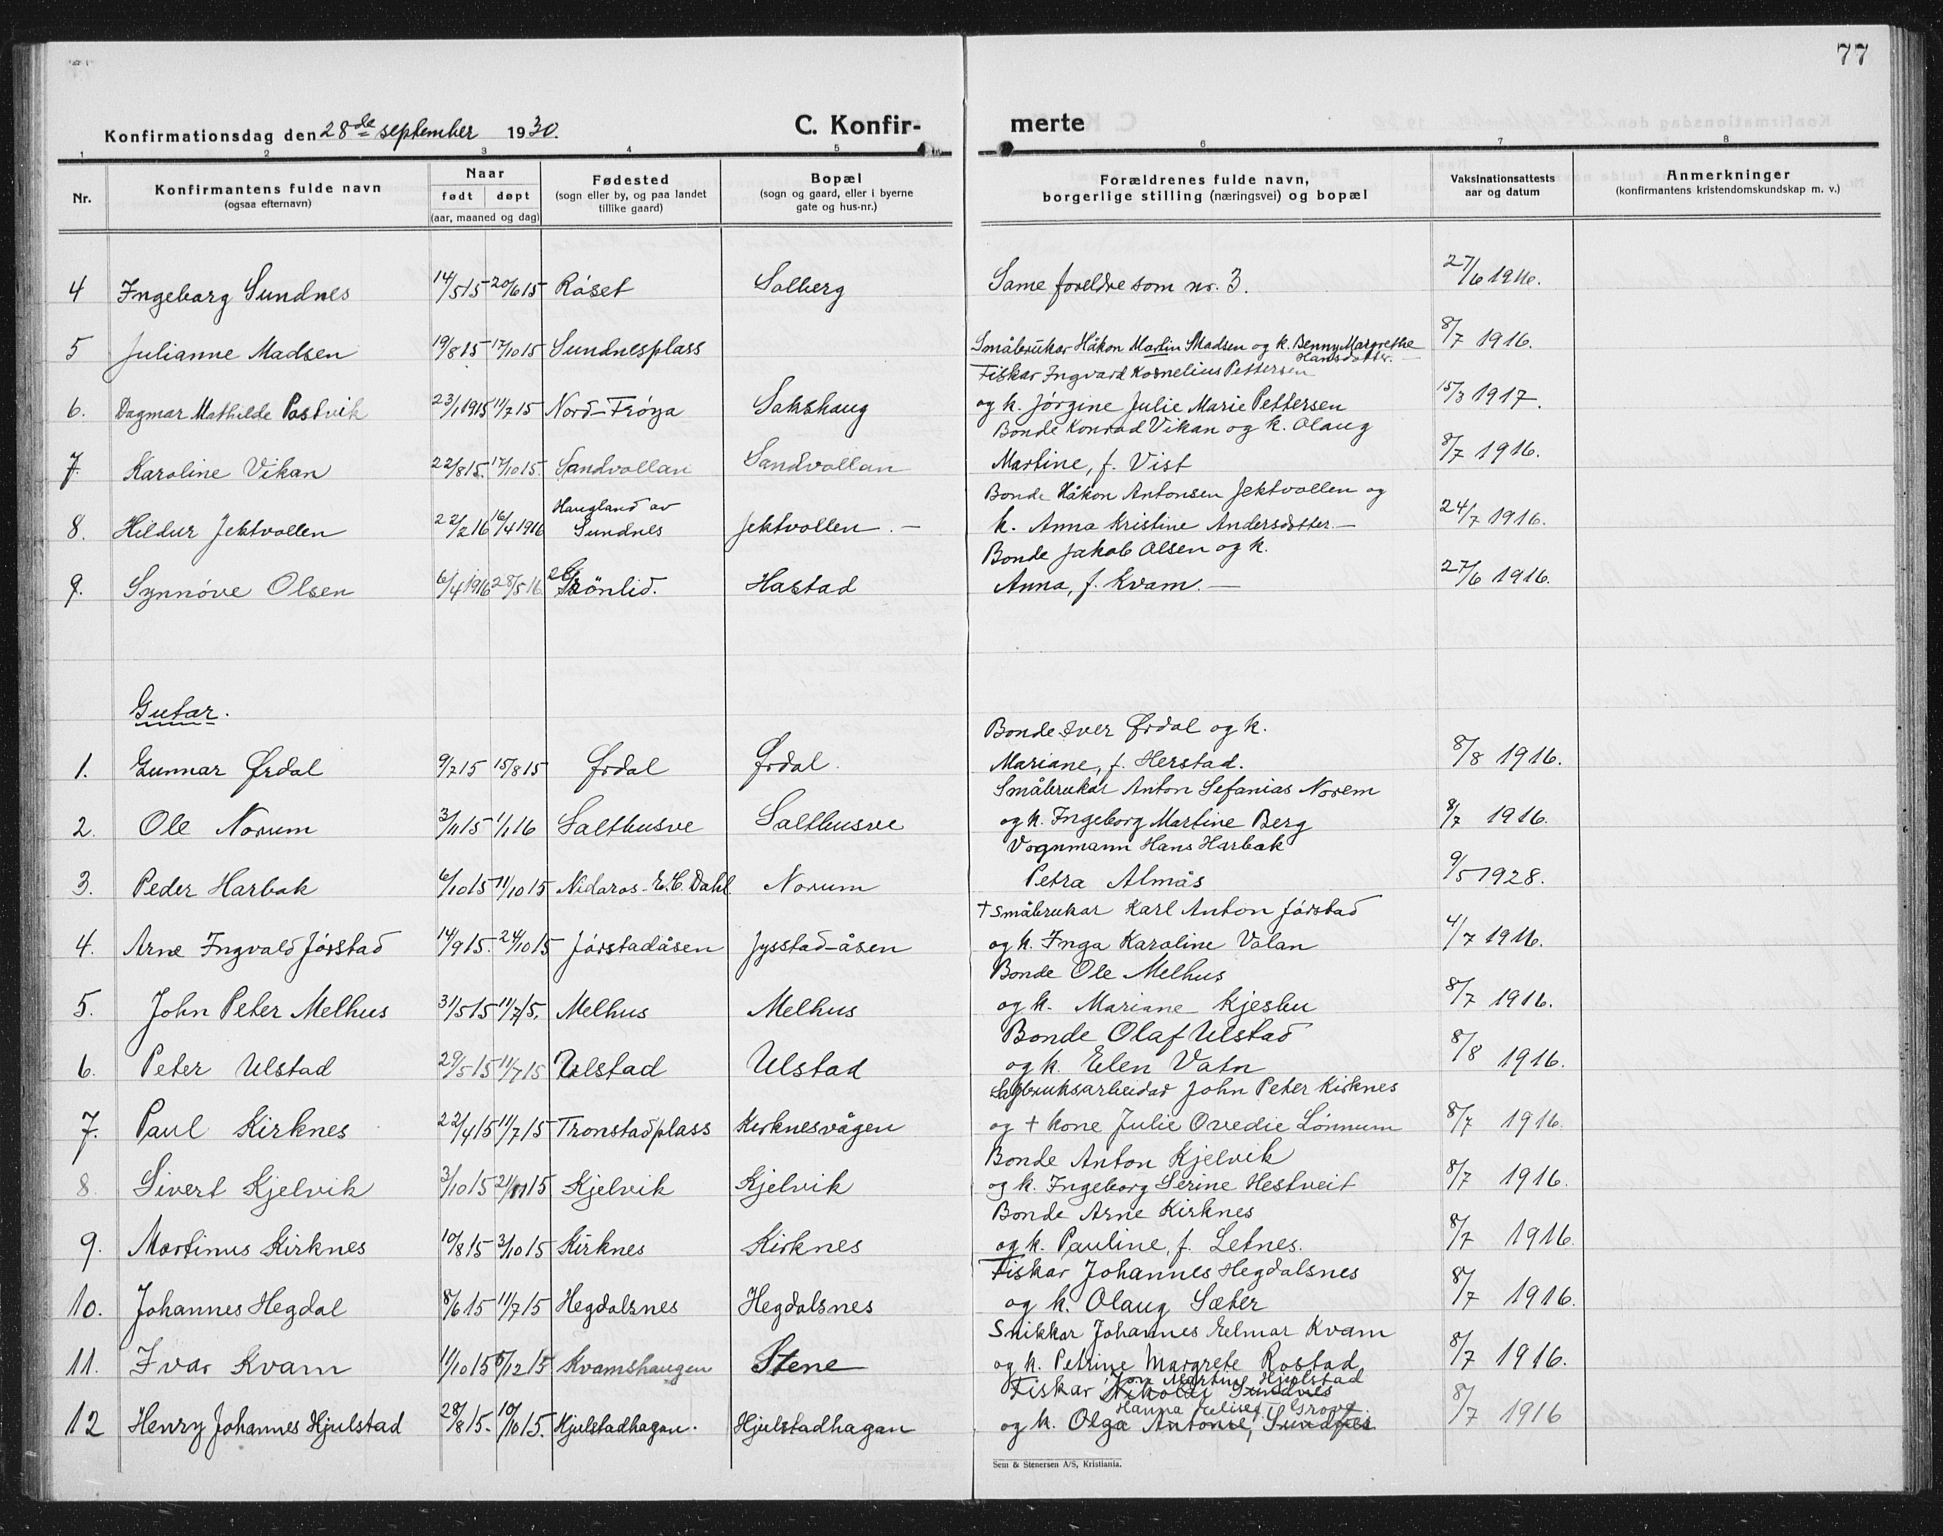 77
Konfirmationsdag den 28de september 1930.
C. Konfirmerte
1 2 3 4 5 6 7 8
Nr. Konfirmantens fulde navn (ogsaa efternavn) Naar født døpt (aar, maaned og dag) Fødested (sogn eller by, og paa landet tillike gaard) Bopæl (sogn og gaard, eller i byerne gate og hus-nr.) Forældrenes fulde navn, borgerlige stilling (næringsvei) og bopæl Vaksinationsattests aar og datum Anmerkninger (konfirmantens kristendomskundskap m. v.)
4 Ingeborg Sundnes 14/5 15 20/6 15 Røset Solberg Same foreldre som nr. 3. 27/6 1916.
5 Julianne Madsen 19/8 15 17/10 15 Sundnesplass Småbrukar Håkon Martin Madsen og k. Benny Margrethe Hansdotter.
8/7 1916.
Fiskar Ingvard Kornelius Pettersen
6. Dagmar Mathilde Postvik 23/1 1915 11/7 15 Nord-Frøya Sakshaug og k. Jørgine Julie Marie Pettersen 15/3 1917.
Bonde Konrad Vikan og k. Olaug
7. Karoline Vikan 22/8 15. 17/10 15. Sandvollan Sandvollan Martine, f. Vist 8/7 1916.
Bonde Håkon Antonsen Jektvollen og
8. Hildur Jektvollen 22/2 16 16/4 1916 Haugland av Sundnes Jektvollen. – k. Anna Kristine Andersdotter – 24/7 1916.
Bonde Jakob Olsen og k.
9. Synnøve Olsen 6/4 1916 28/5 16 Grønlid. Hastad Anna, f. Kvam. – 27/6 1916.
Gutar.
Bonde Iver Ørdal og k.
1. Gunnar Ørdal 9/7 15 15/8 15 Ørdal Ørdal. Mariane, f. Herstad. 8/8 1916.
Småbrukar Anton Sefanias Norem
2. Ole Norum 3/11 15 1/1 16 Salthusve Salthusve og k. Ingeborg Martine Berg 8/7 1916.
Vognmann Hans Harbak
3. Peder Harbak 6/10 15 11/10 15 Nidaros-E.C. Dahl Norum Petra Almås 9/5 1928.
† småbrukar Karl Anton Jørstad
4. Arne Ingvald Jørstad 14/9 15. 24/10 15 Jørstadåsen Jysstad-åsen og k. Inga Karoline Valan 4/7 1916.
Bonde Ole Melhus
5. John Peter Melhus 31/5 15 11/7 15. Melhus Melhus og k. Mariane Kjesbu 8/7 1916.
Bonde Olaf Ulstad
6. Peter Ulstad 29/5 15 11/7 15 Ulstad Ulstad og k. Elen Vatn 8/8 1916.
Sagbruksarbeidar John Peter Kirknes
7. Paul Kirknes 22/4 15 11/7 15 Tronstadplass Kirknesvågen og † kone Julie Ovedie Lønnum 8/7 1916.
Bonde Anton Kjelvik
8. Sivert Kjelvik 3/10 15 21/11 15 Kjelvik Kjelvik og k. Ingeborg Serine Hestveit 8/7 1916.
Bonde Arne Kirknes
9. Martinus Kirknes 10/8 15 3/10 15 Kirknes Kirknes og k. Pauline, f. Letnes. 8/7 1916.
Fiskar Johannes Hegdalsnes
10. Johannes Hegdal 8/6 15 11/7 15 Hegdalsnes Hegdalsnes og k. Olaug Sæter 8/7 1916.
Snikkar Johannes Elmar Kvam
11. Ivar Kvam 11/10 15 5/12 15 Kvamshaugen Stene og k. Petrine Margrete Rostad 8/7 1916.
Jon Martin Hjulstad
Fiskar Nikolai Sundnes
Hanna Grove.
12 Henry Johannes Hjulstad 28/8 15. 10/10 15. Hjulstadhagan. Hjulstadhagan og k. Olga Antonie, Sundnes 8/7 1916
Sem & Stenersen A/S, Kristiania.